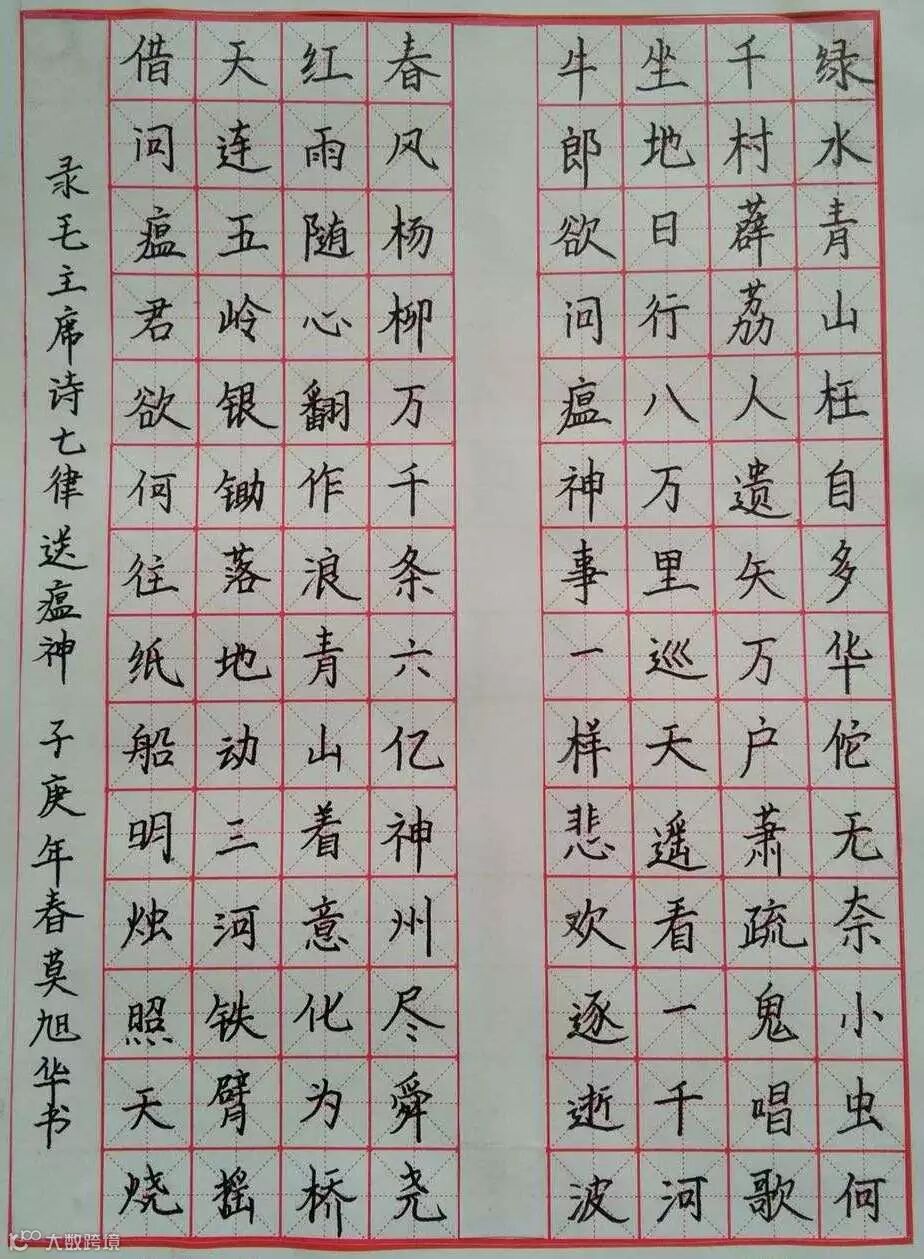 绿水青山枉自多华佗无奈小虫何
千村薜荔人遗矢万户萧疏鬼唱歌
坐地日行八万里巡天遥看一千河
牛郎欲问瘟神事一样悲欢逐逝波
春风杨柳万千条六亿神州尽舜尧
红雨随心翻作浪青山着意化为桥
天连五岭银锄落地动三河铁臂摇
借问瘟君欲何往纸船明烛照天烧
录毛主席诗七律送瘟神 子庚年春莫旭华书
大数跨境